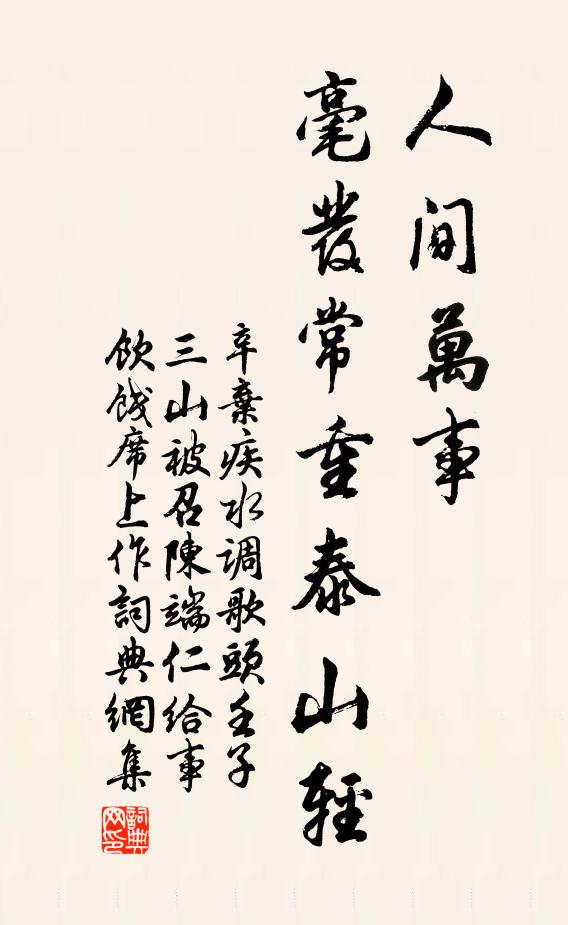 人间萬事
毫發常重泰山輕
辛棄疾水调歌頭壬子
三山被召陳端仁给事
飲餞席上作詞典網集
詞典网印